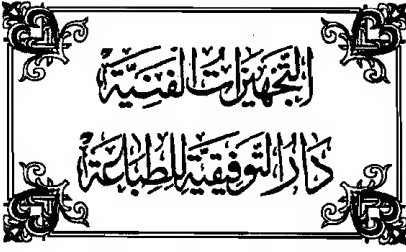 التَّجْهِيزَاتُ الفَنِيَّةْ
دَارُ التَّوْفِيقِيَّةِ لِلطِّبَاعَةْ